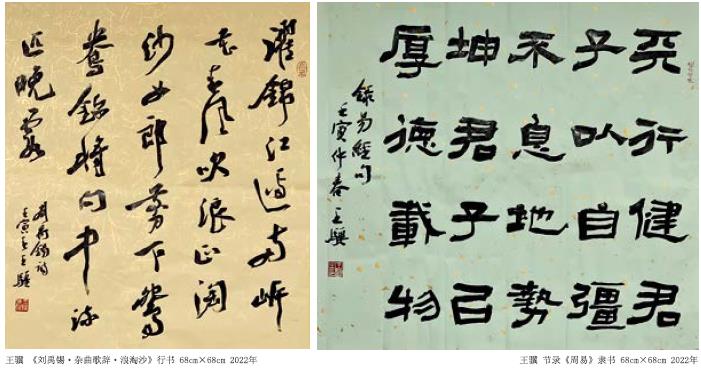 濯錦江邊兩岸
花春風吹浪正淘
沙女郎剪下鴛
鴦錦將向中流
匹晚霞
劉禹錫詩
壬寅春王驥
天行健君
子以自彊
不息地勢
坤君子以
厚德載物
錄易經句
壬寅仲春王驥
王骥 《刘禹锡·杂曲歌辞·浪淘沙》行书 68cm×68cm 2022年
王骥 节录《周易》隶书 68cm×68cm 2022年